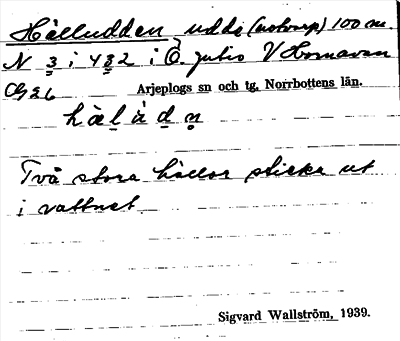 Hälludden udde (motvarp) 100 m.
N 3 i 432 i Ö. julio V Hornavan
Cg 26 Arjeplogs sn och tg. Norrbottens län.
hälùdn
Två stora hällor sticka ut
i vattnet.
Sigvard Wallström, 1939.